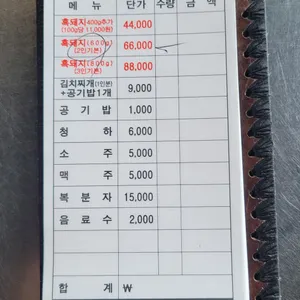 메 뉴 단가 수량 금 액
흑돼지 400g추가 44,000
(100g당 11,000원)
흑돼지(600g) 66,000
(2인기본)
흑돼지(800g) 88,000
(3인기본)
김치찌개(1인분) 9,000
+공기밥1개
공 기 밥 1,000
청 하 6,000
소 주 5,000
맥 주 5,000
복 분 자 15,000
음 료 수 2,000
합 계 ₩